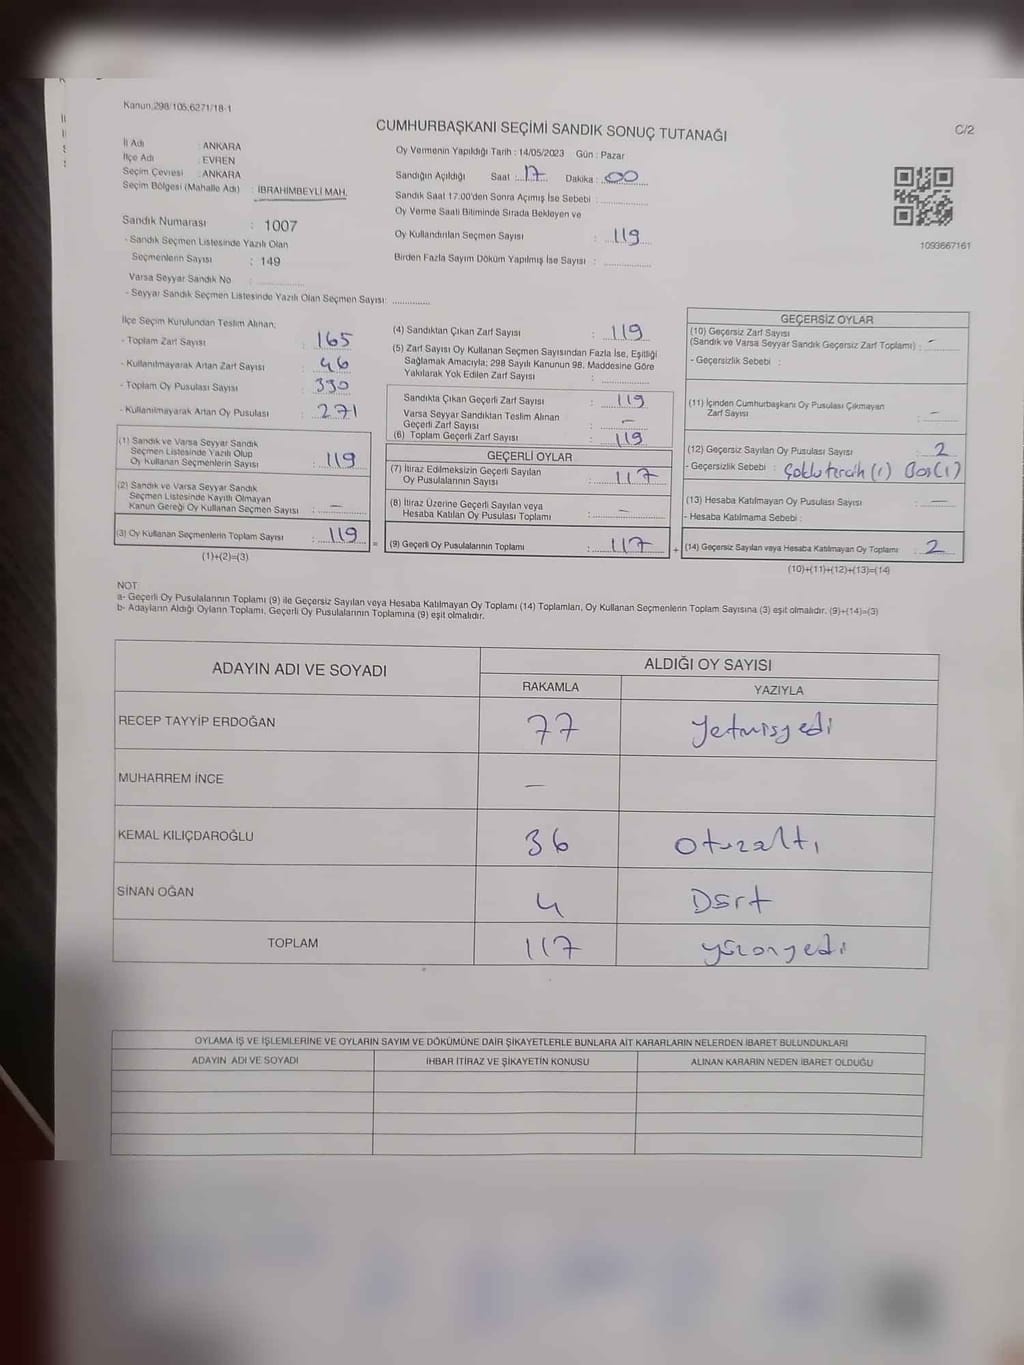 Kanun:298/105,6271/18-1
CUMHURBAŞKANI SEÇİMİ SANDIK SONUÇ TUTANAĞI
C/2
İl Adı : ANKARA
İlçe Adı : EVREN
Seçim Çevresi : ANKARA
Seçim Bölgesi (Mahalle Adı) : İBRAHİMBEYLİ MAH.
Sandık Numarası : 1007
- Sandık Seçmen Listesinde Yazılı Olan
Seçmenlerin Sayısı : 149
Varsa Seyyar Sandık No :
- Seyyar Sandık Seçmen Listesinde Yazılı Olan Seçmen Sayısı:
Oy Vermenin Yapıldığı Tarih : 14/05/2023 Gün : Pazar
Sandığın Açıldığı Saat : 17 Dakika : 00
Sandık Saat 17:00'den Sonra Açımış İse Sebebi :
Oy Verme Saati Bitiminde Sırada Bekleyen ve
Oy Kullandırılan Seçmen Sayısı : 119
Birden Fazla Sayım Döküm Yapılmış İse Sayısı :
1093667161
İlçe Seçim Kurulundan Teslim Alınan;
- Toplam Zarf Sayısı : 165
- Kullanılmayarak Artan Zarf Sayısı : 46
- Toplam Oy Pusulası Sayısı : 330
- Kullanılmayarak Artan Oy Pusulası : 271
(1) Sandık ve Varsa Seyyar Sandık
Seçmen Listesinde Yazılı Olup
Oy Kullanan Seçmenlerin Sayısı : 119
(2) Sandık ve Varsa Seyyar Sandık
Seçmen Listesinde Kayıtlı Olmayan
Kanun Gereği Oy Kullanan Seçmen Sayısı : —
(3) Oy Kullanan Seçmenlerin Toplam Sayısı : 119
(1)+(2)=(3)
=
(4) Sandıktan Çıkan Zarf Sayısı : 119
(5) Zarf Sayısı Oy Kullanan Seçmen Sayısından Fazla İse, Eşitliği
Sağlamak Amacıyla; 298 Sayılı Kanunun 98. Maddesine Göre
Yakılarak Yok Edilen Zarf Sayısı :
Sandıkta Çıkan Geçerli Zarf Sayısı : 119
Varsa Seyyar Sandıktan Teslim Alınan
Geçerli Zarf Sayısı : —
(6) Toplam Geçerli Zarf Sayısı : 119
GEÇERLİ OYLAR
(7) İtiraz Edilmeksizin Geçerli Sayılan
Oy Pusulalarının Sayısı : 117
(8) İtiraz Üzerine Geçerli Sayılan veya
Hesaba Katılan Oy Pusulası Toplamı : —
(9) Geçerli Oy Pusulalarının Toplamı : 117
+
GEÇERSİZ OYLAR
(10) Geçersiz Zarf Sayısı
(Sandık ve Varsa Seyyar Sandık Geçersiz Zarf Toplamı) : —
- Geçersizlik Sebebi :
(11) İçinden Cumhurbaşkanı Oy Pusulası Çıkmayan
Zarf Sayısı : —
(12) Geçersiz Sayılan Oy Pusulası Sayısı : 2
- Geçersizlik Sebebi : Çoklu tercih (1) Boş (1)
(13) Hesaba Katılmayan Oy Pusulası Sayısı : —
- Hesaba Katılmama Sebebi :
(14) Geçersiz Sayılan veya Hesaba Katılmayan Oy Toplamı : 2
(10)+(11)+(12)+(13)=(14)
NOT
a- Geçerli Oy Pusulalarının Toplamı (9) ile Geçersiz Sayılan veya Hesaba Katılmayan Oy Toplamı (14) Toplamları, Oy Kullanan Seçmenlerin Toplam Sayısına (3) eşit olmalıdır. (9)+(14)=(3)
b- Adayların Aldığı Oyların Toplamı, Geçerli Oy Pusulalarının Toplamına (9) eşit olmalıdır.
ADAYIN ADI VE SOYADI ALDIĞI OY SAYISI
RAKAMLA YAZIYLA
RECEP TAYYİP ERDOĞAN 77 Yetmişyedi
MUHARREM İNCE —
KEMAL KILIÇDAROĞLU 36 Otuzaltı
SİNAN OĞAN 4 Dört
TOPLAM 117 yüzonyedi
OYLAMA İŞ VE İŞLEMLERİNE VE OYLARIN SAYIM VE DÖKÜMÜNE DAİR ŞİKAYETLERLE BUNLARA AİT KARARLARIN NELERDEN İBARET BULUNDUKLARI
ADAYIN ADI VE SOYADI İHBAR İTİRAZ VE ŞİKAYETİN KONUSU ALINAN KARARIN NEDEN İBARET OLDUĞU